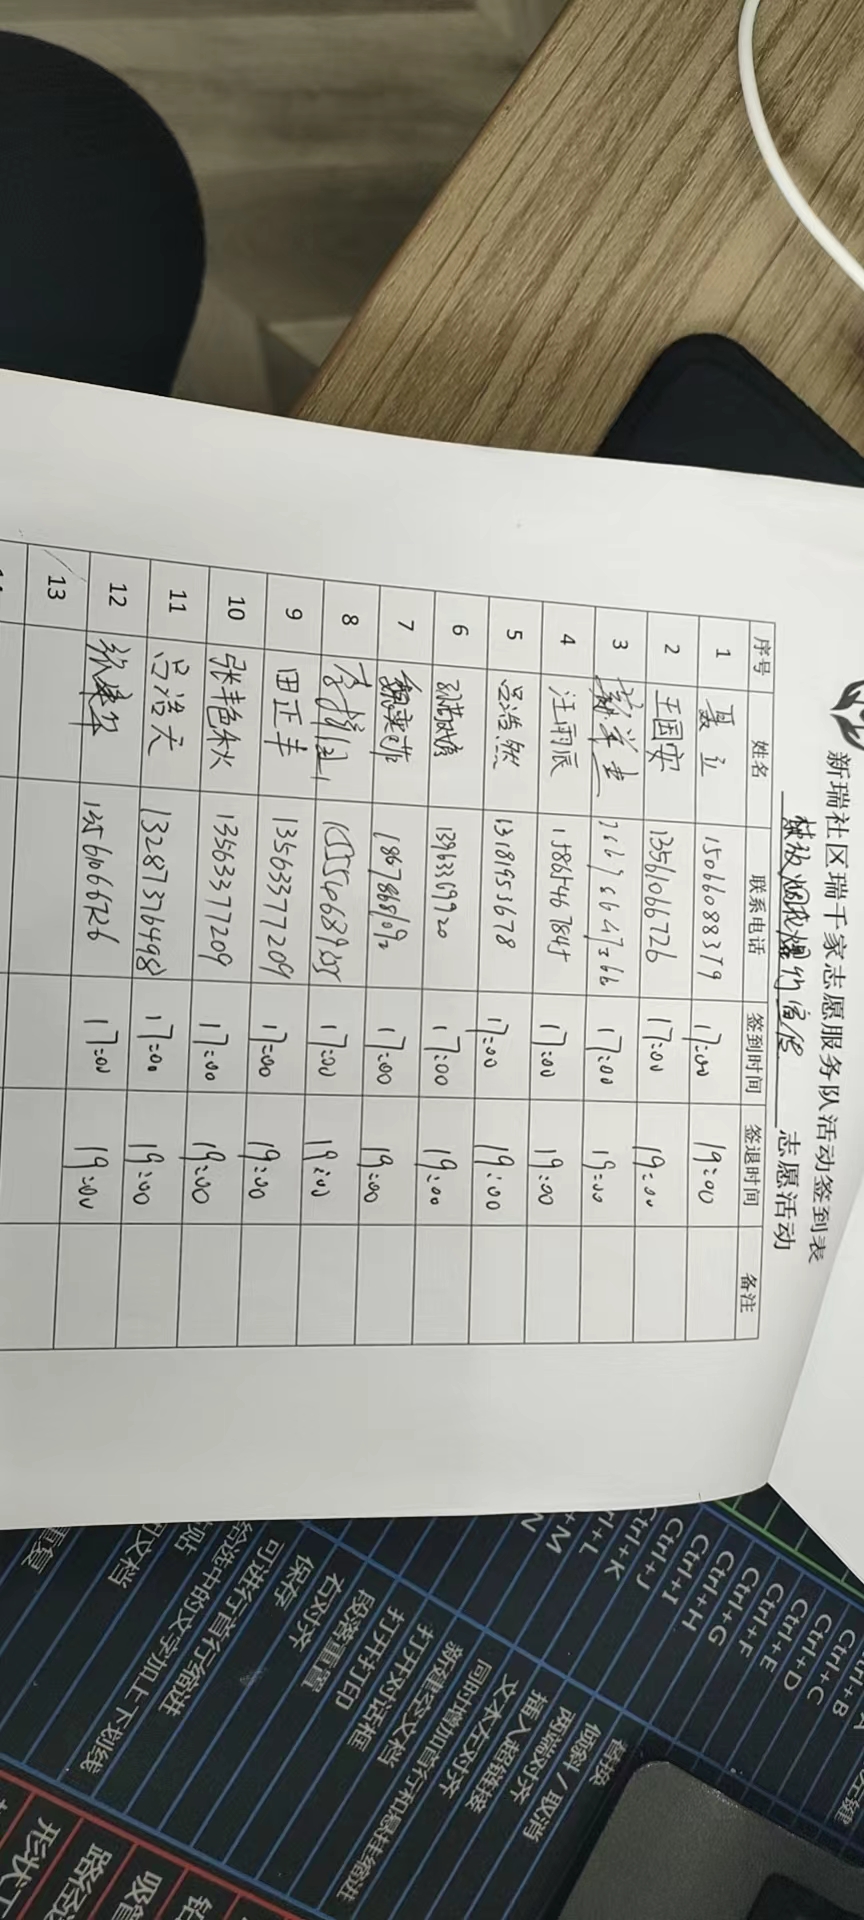 新瑞社区瑞千家志愿服务队活动签到表
禁放烟花爆竹宣传 志愿活动
序号 姓名 联系电话 签到时间 签退时间 备注
1 聂立 15066088379 17:00 19:00
2 王国实 13561066726 17:00 19:00
3 17:00 19:00
4 汪雨辰 15865467845 17:00 19:00
5 吕浩然 13181953678 17:00 19:00
6 13963369920 17:00 19:00
7 魏奕菲 17:00 19:00
8 17:00 19:00
9 田正丰 13563377209 17:00 19:00
10 张艳秋 13563377209 17:00 19:00
11 吕浩天 13287376498 17:00 19:00
12 13561066726 17:00 19:00
13
Ctrl+B
Ctrl+C
Ctrl+D
Ctrl+E
Ctrl+F
Ctrl+G
Ctrl+H
Ctrl+I
Ctrl+J
Ctrl+K
替换
倾斜 / 取消
两端对齐
插入超链接
文本左对齐
同时增加首行和悬挂缩进
新建空文档
打开对话框
打开打印
段落重置
右对齐
保存
可进行首行缩进
给选中的文字加上下划线